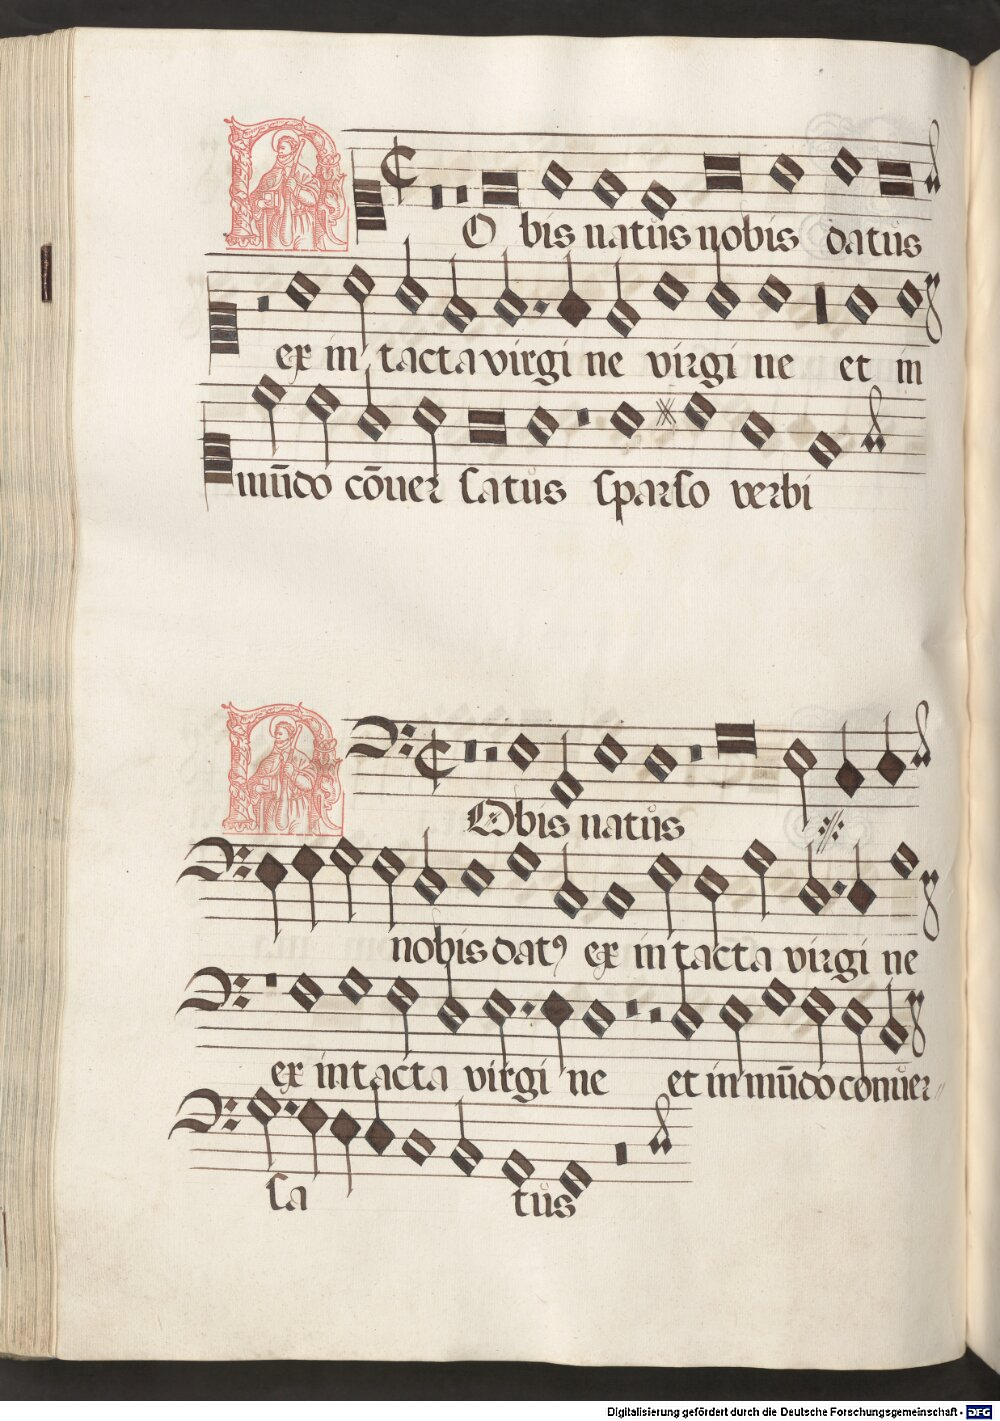 NO bis natus nobis datus
ex in tacta virgi ne virgi ne et in
mūdo cōuer satus sparso verbi
NObis natus
nobis datꝰ ex in tacta virgi ne
ex intacta virgi ne et in mūdo conuer
sa tus
Digitalisierung gefördert durch die Deutsche Forschungsgemeinschaft - DFG